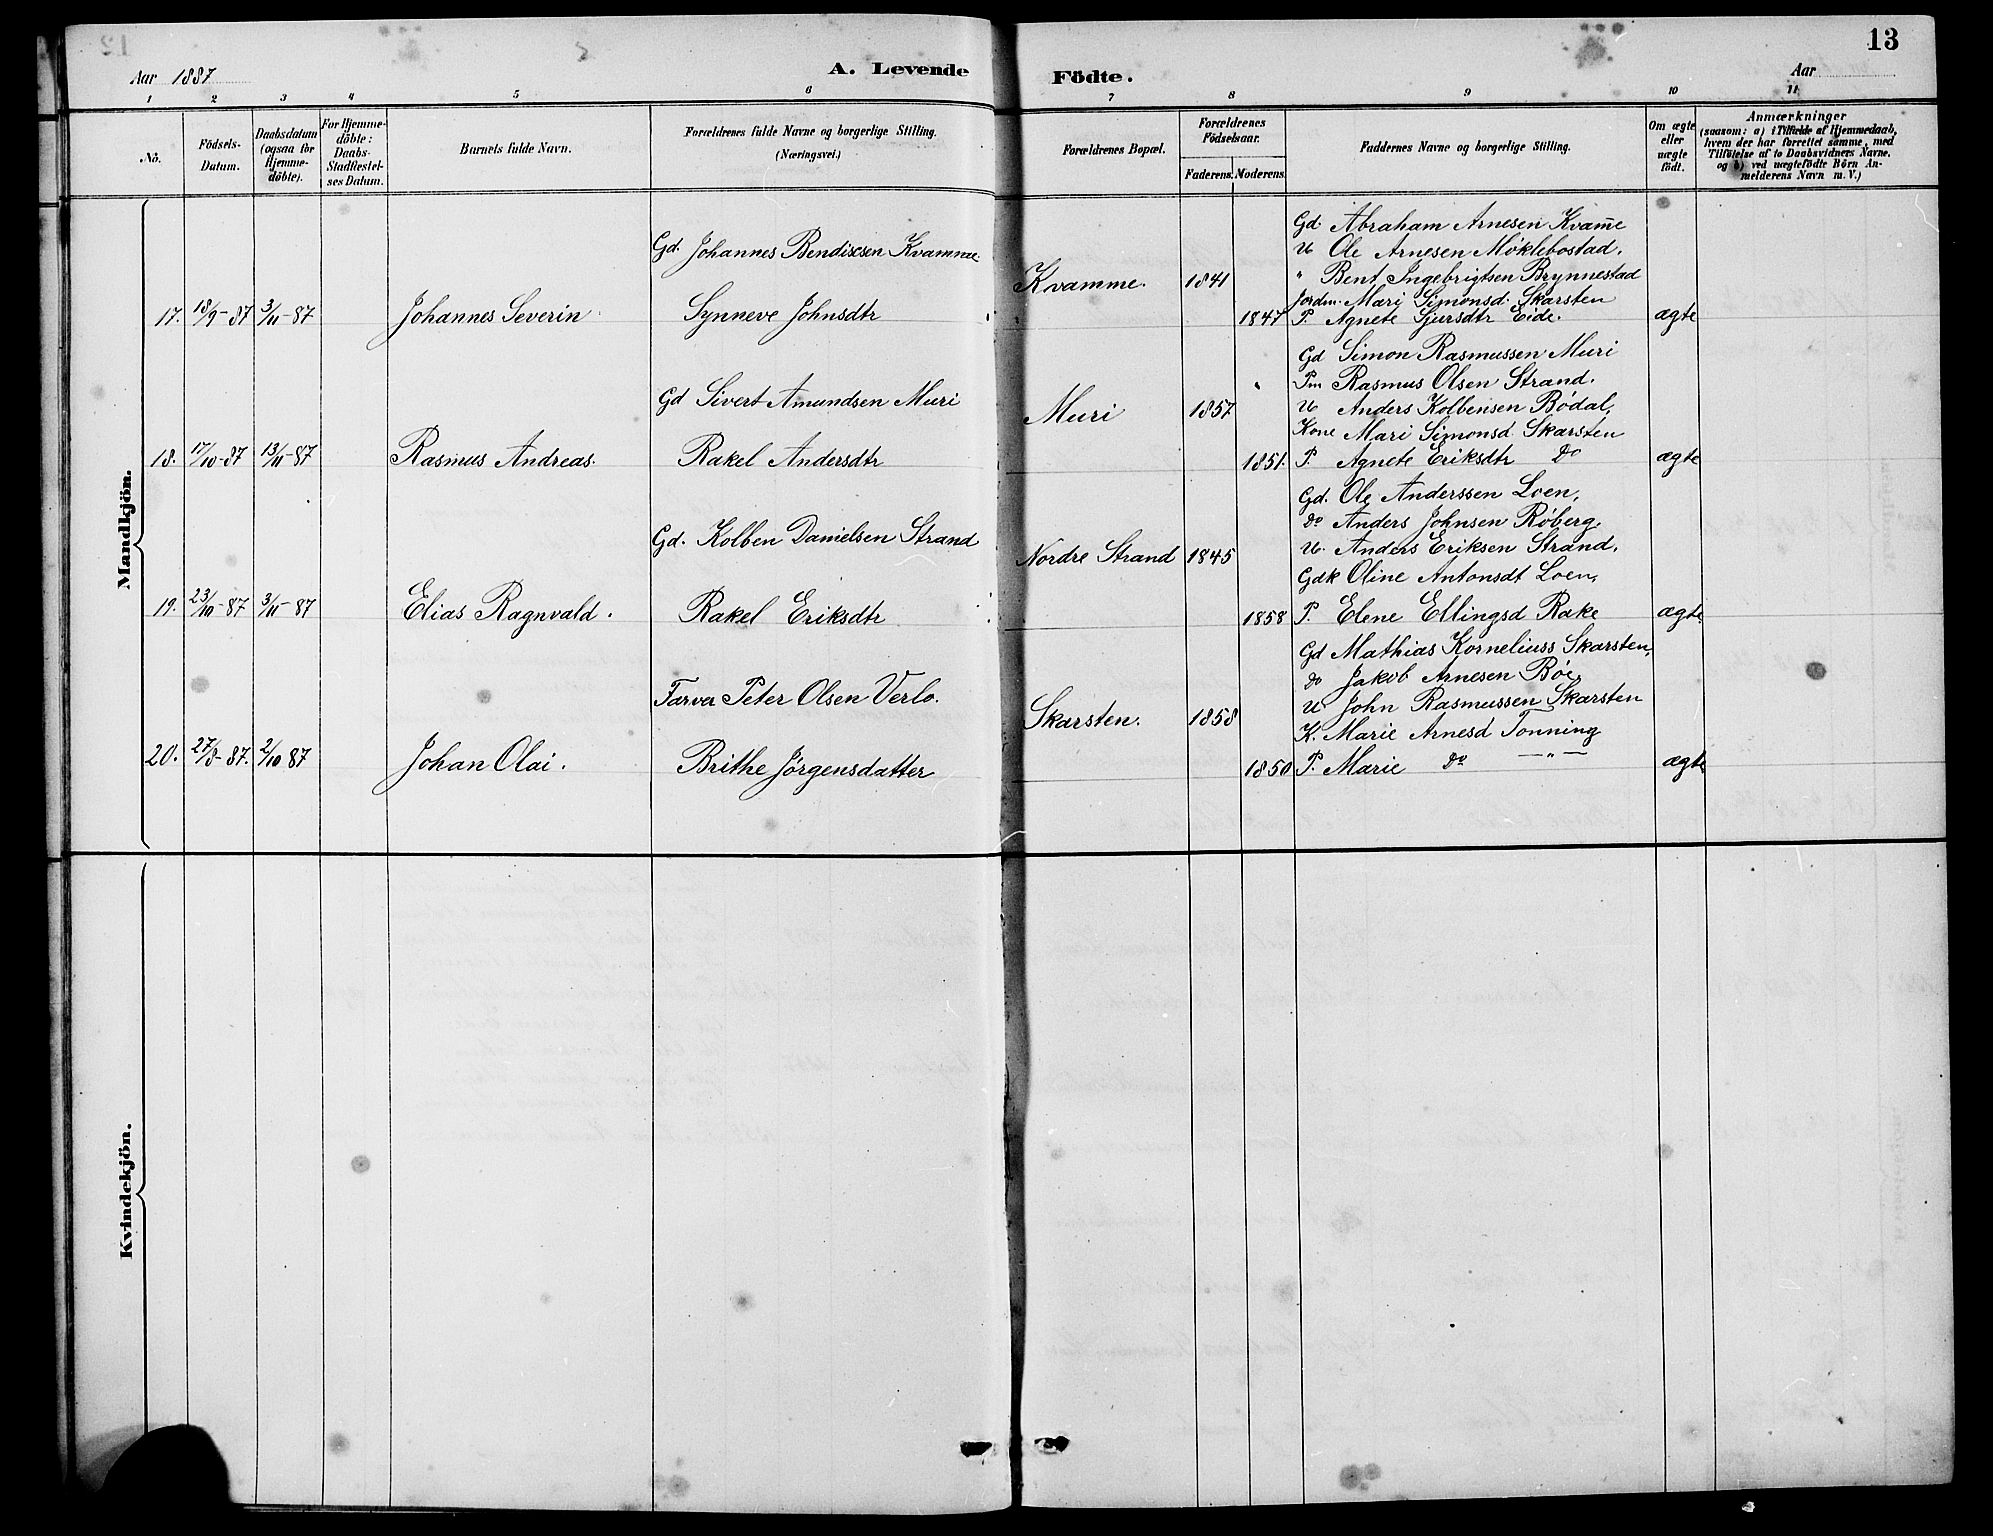 13
Aar 1887
A. Levende Födte.
Aar
1 2 3 4 5 6 7 8 9 10 11
No.
Födsels-Datum.
Daabsdatum (ogsaa for Hjemmedöbte).
For Hjemmedöbte: Daabs-Stadfæstelses Datum.
Barnets fulde Navn.
Forældrenes fulde Navne og borgerlige Stilling.
(Næringsvei.)
Forældrenes Bopæl.
Forældrenes Födselsaar.
Faderens. Moderens.
Faddernes Navne og borgerlige Stilling.
Om ægte eller uægte födt.
Anmærkninger
(saasom: a) i Tilfælde af Hjemmedaab, hvem der har forrettet samme, med Tilföielse af to Daabsvidners Navne, og b) ved uægtefödte Börn Anmelderens Navn m. V.)
Mandkjön.
Gd. Johannes Bendixsen Kvamme.
Kvamme. 1841
Gd. Abraham Arnesen Kvam̄e
U Ole Arnesen Møklebostad.
" Bent Ingebrigtsen Brynnestad
Jordm. Mari Simonsd. Skarsten
17. 18/9-87 3/11-87 Johannes Severin Synneve Johnsdtr 1847 P. Agnete Sjursdtr Eide. ægte
Gd Simon Rasmussen Muri
Pm Rasmus Olsen Strand.
Gd Sivert Amundsen Muri
Muri 1857
U Anders Kolbensen Bødal,
Kone Mari Simonsd. Skarsten
18. 17/10-87 13/11-87 Rasmus Andreas. Rakel Andersdtr 1851. P. Agnete Eriksdtr Do ægte
Gd. Ole Anderssen Loen,
Do Anders Johnsen Røberg.
Gd. Kolben Danielsen Strand
Nordre Strand 1845
U. Anders Eriksen Strand.
Gdk Oline Antonsdt Loen,
19. 23/10-87 3/11-87 Elias Ragnvald. Rakel Eriksdtr 1858 P. Elene Ellingsd Rake ægte.
Gd Mathias Korneliuss Skarsten,
Do Jakob Arnesen Bøe,
Farver Peter Olsen Verlo.
Skarsten. 1858
U. John Rasmussen Skarsten
K. Marie Arnesd Tonning
20. 27/8-87. 2/10 87 Johan Olai. Brithe Jørgensdatter 1850 P. Marie Do —"— ægte
Kvindekjön.